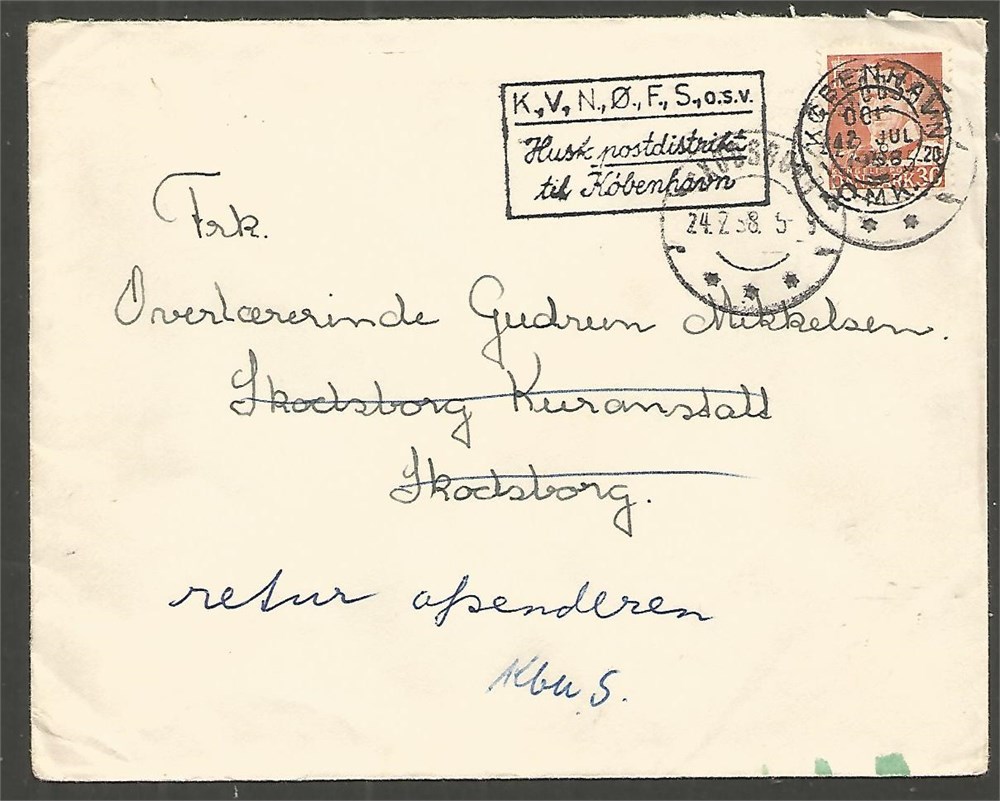 K., V., N., Ø., F., S., o.s.v.
Husk postdistrikt
til København
KØBENHAVN
OMK.
24.2.58. 5-
Frk.
Overlærerinde Gudrun Mikkelsen.
Skodsborg Kuranstalt
Skodsborg.
retur afsenderen
Kbh S.